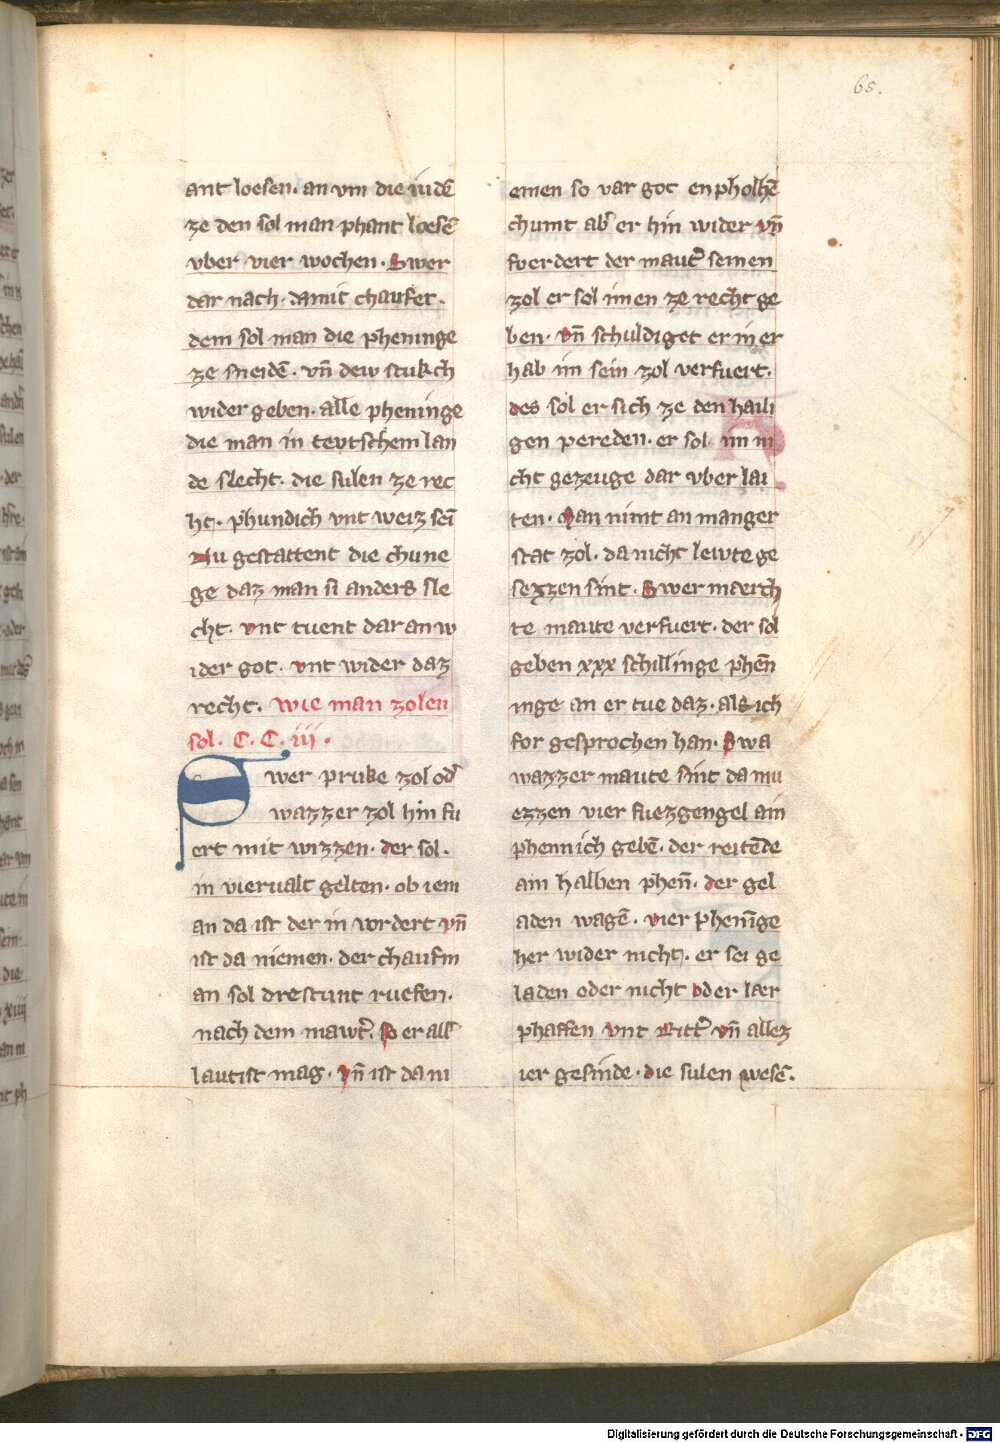 65.
ant loesen. an vm die iudē
ze den sol man phant loesē
vber vier wochen. Swer
dar nach. damit chaufet.
dem sol man die pheninge
ze sneidē. vn̄ dew stukch
wider geben. alle pheninge
die man in tevtschem lan
de slecht. die sulen ze rec
ht. phundich vnt weiz sei
Nu gestattent die chune
ge daz man si anders sle
cht. vnt tuent dar an w
ider got. vnt wider daz
recht. wie man zolen
sol. C. C. iii.
Swer pruke zol od̕
wazzer zol hin fu
ert mit wizzen. der sol.
in viervalt gelten. ob iem
an da ist der in vordert vn̄
ist da niemen. der chaufm
an sol drestunt ruefen.
nach dem mawt̕. so er all̕
lautist mag. vn̄ ist da ni
emen so var got enpholhē
chumt ab̕ er hin wider vn̄
foerdert der maut̕ seinen
zol er sol imen ze recht ge
ben. vn̄ schuldiget er in er
hab im sein zol verfuert.
des sol er sich ze den haili
gen pereden. er sol im ni
cht gezeuge dar vber lai
ten. Man nimt an manger
stat zol. da nicht lewte ge
sezzen sint. Swer maerch
te maute verfuert. der sol
geben xxx schillinge phēn
inge an er tue daz. als ich
for gesprochen han. Swa
wazzer maute sint da mu
ezzen vier fuezgengel ain
phennich gebē. der reitēde
ain halben phen̄. der gel
aden wagē. vier phenīge
her wider nicht. er sei ge
laden oder nicht oder laer
phaffen vnt Ritt̕ vn̄ allez
ier gesinde. die sulen wesē.
Digitalisierung gefördert durch die Deutsche Forschungsgemeinschaft - DFG